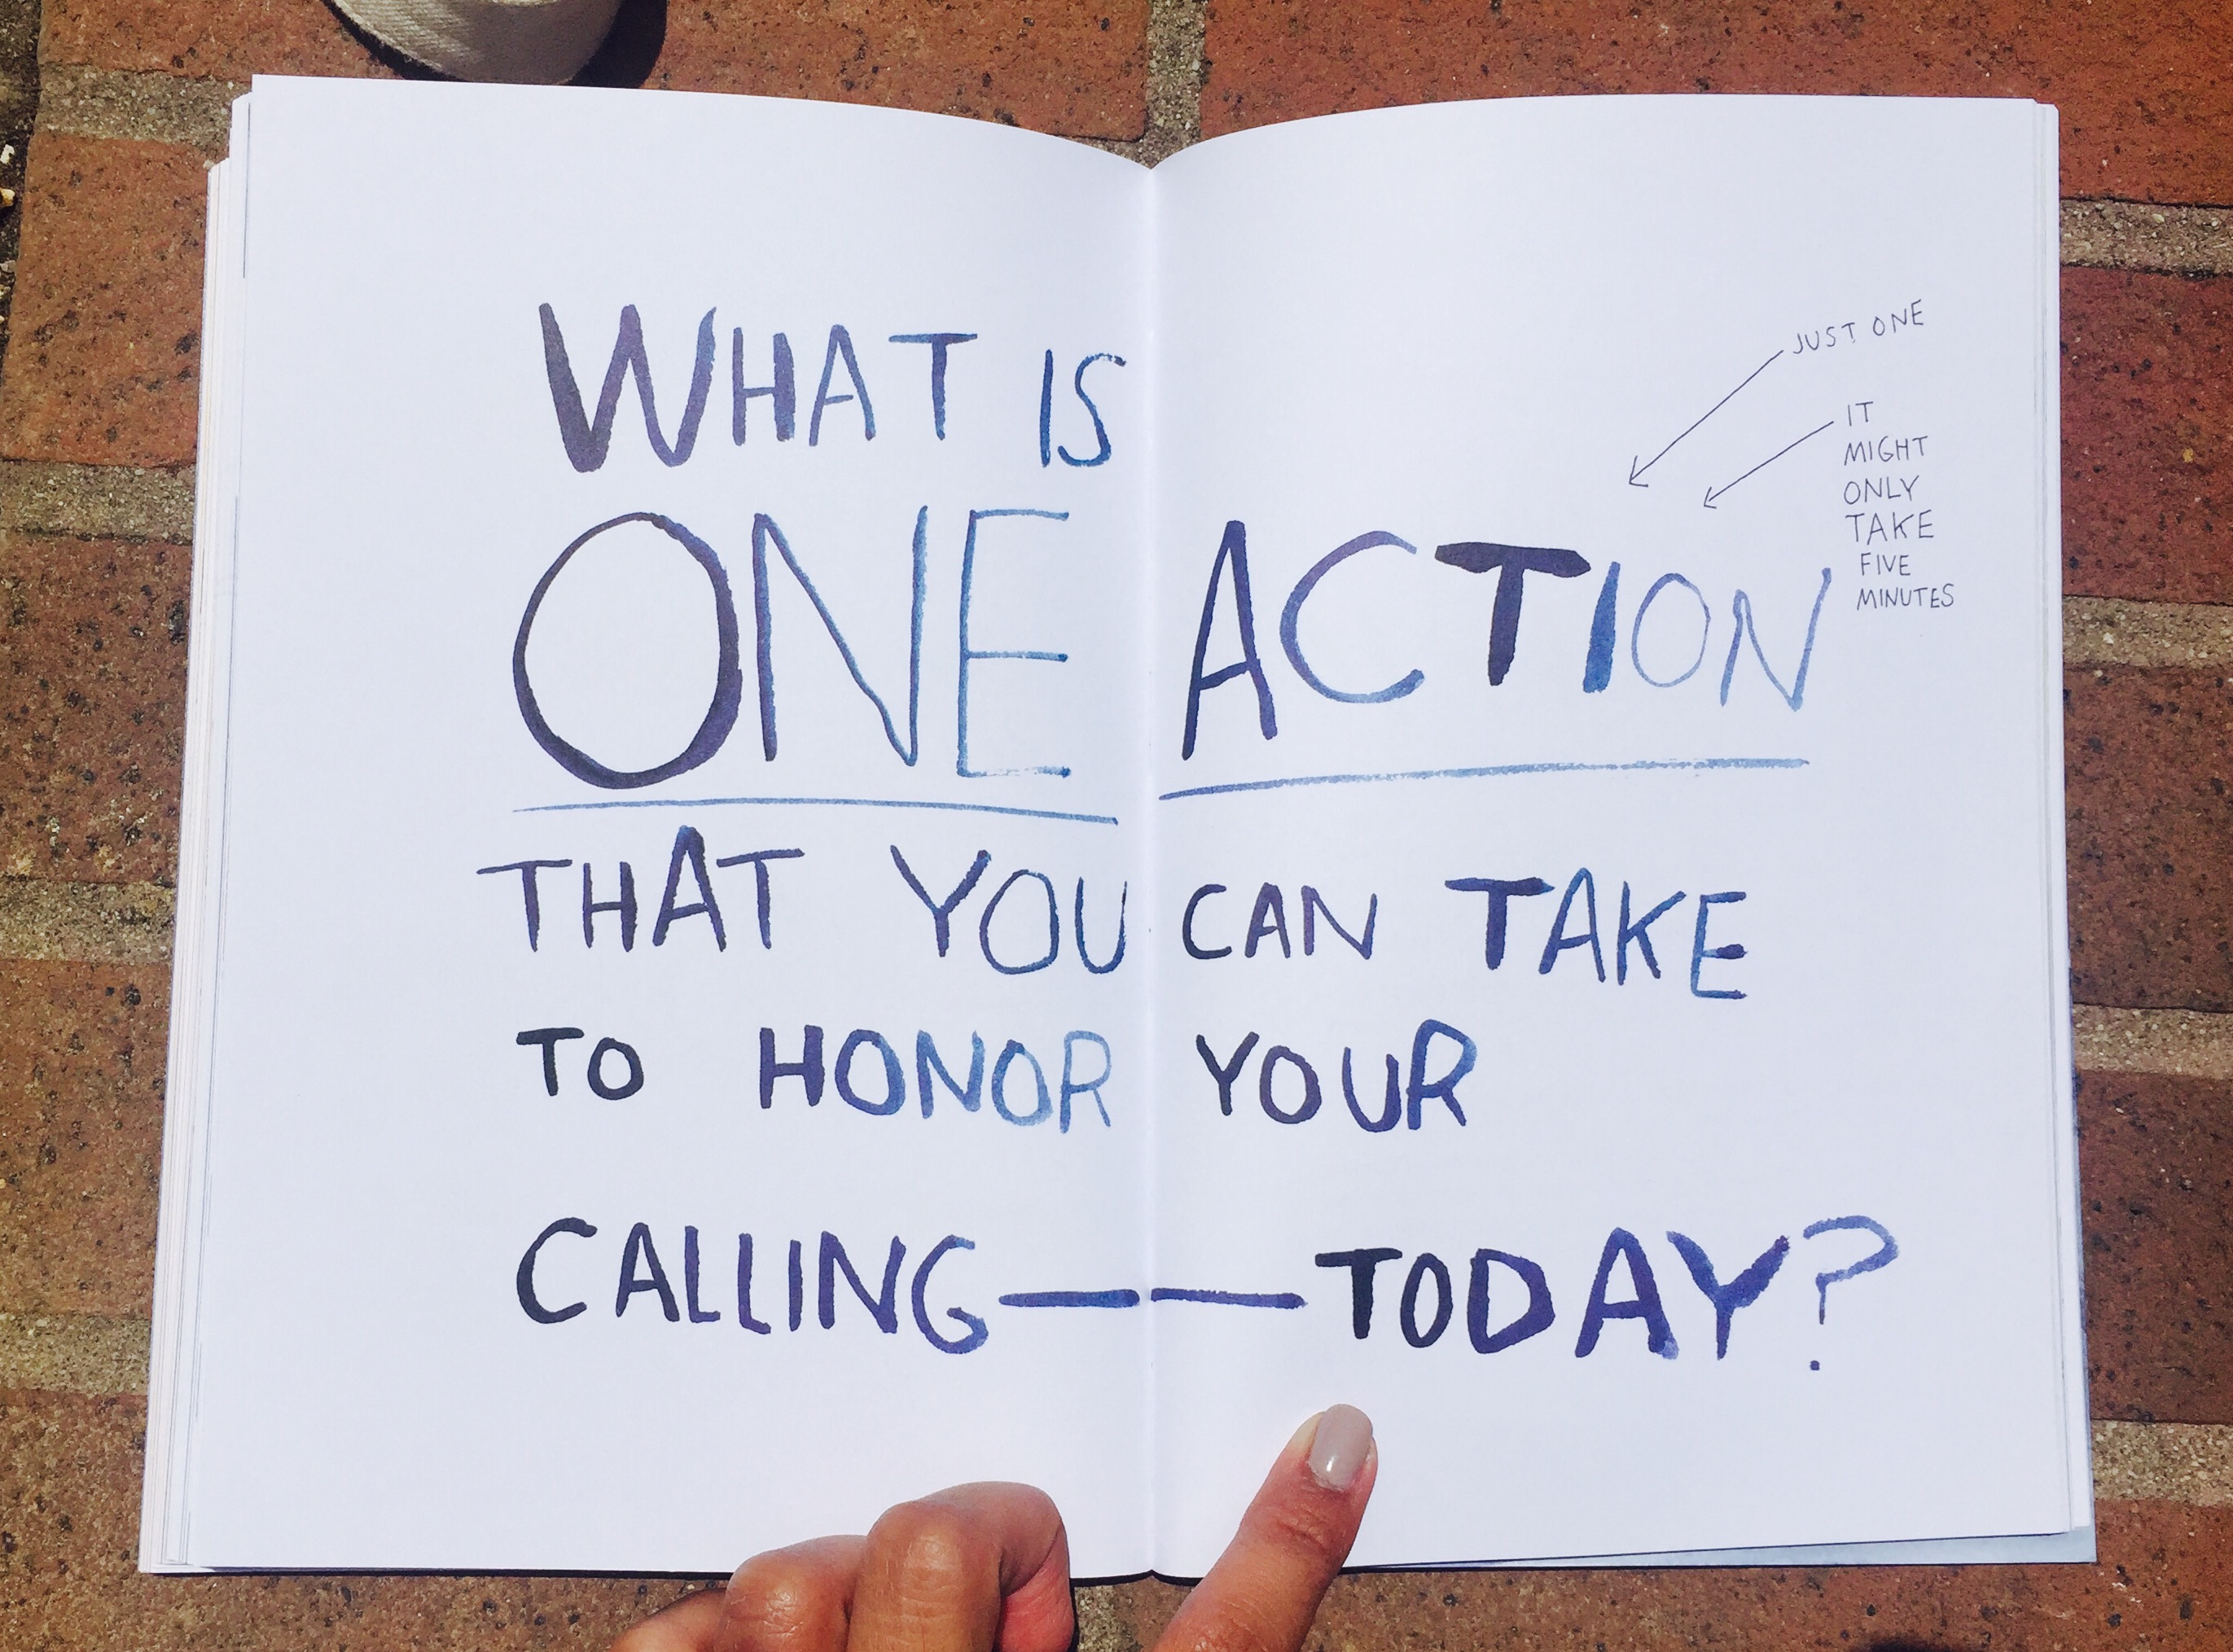 WHAT IS
ONE ACTION
THAT YOU CAN TAKE
TO HONOR YOUR
CALLING——TODAY?
JUST ONE
IT
MIGHT
ONLY
TAKE
FIVE
MINUTES